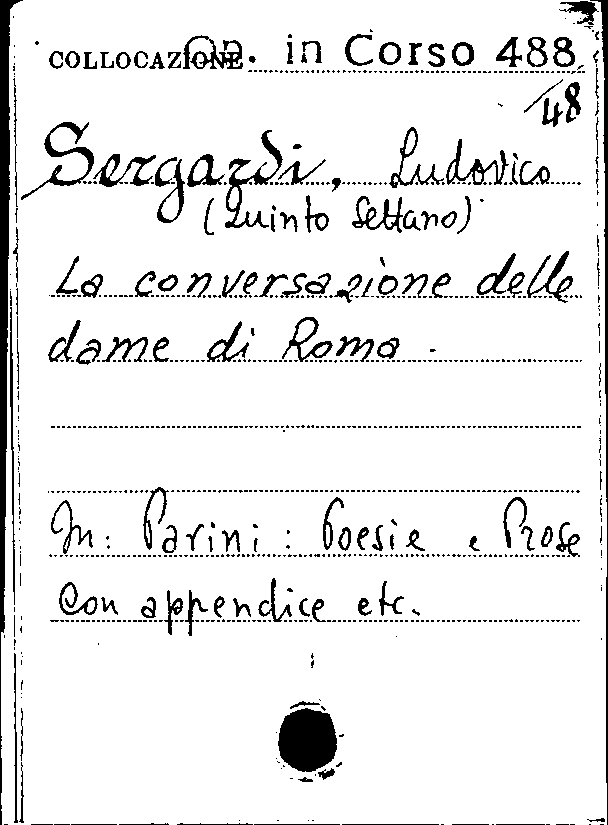 COLLOCAZIONE Op. in Corso 488
/48
Sergardi, Ludovico
(Quinto Settano)
La conversazione delle
dame di Roma.
In: Parini: Poesie e Prose
Con appendice etc.